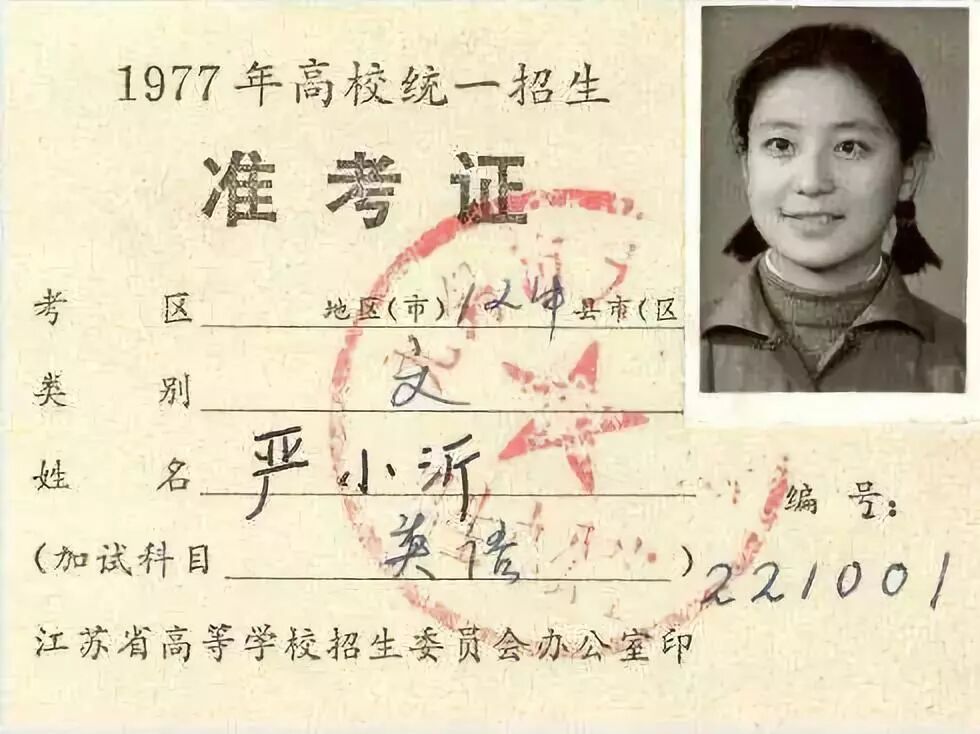 1977年高校统一招生
准考证
考 区 地区(市) 县市(区
类 别 文
姓 名 严小沂
编 号:
(加试科目 英语)
221001
江苏省高等学校招生委员会办公室印